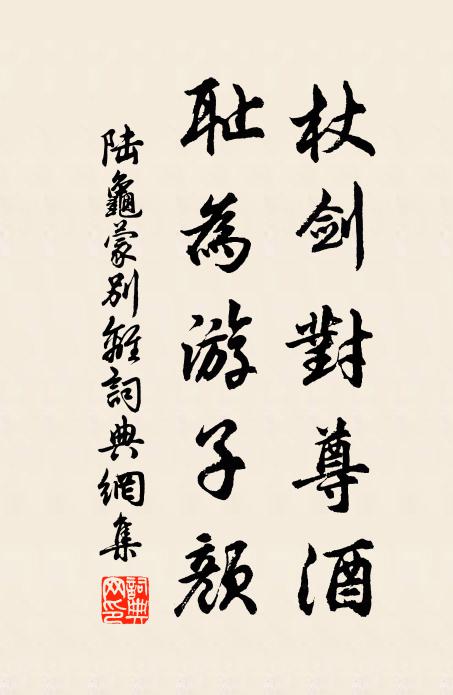 杖剑對尊酒
耻為游子顔
陆龜蒙别離詞典網集
詞典網印